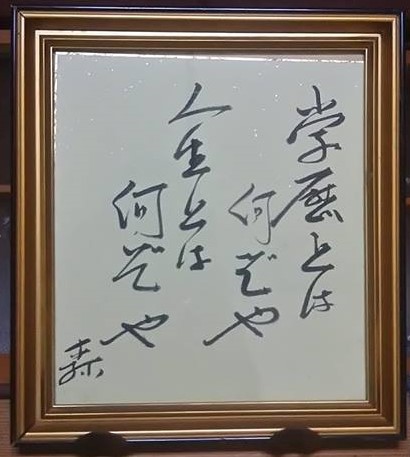 学歴とは
何ぞや
人生とは
何ぞや
森